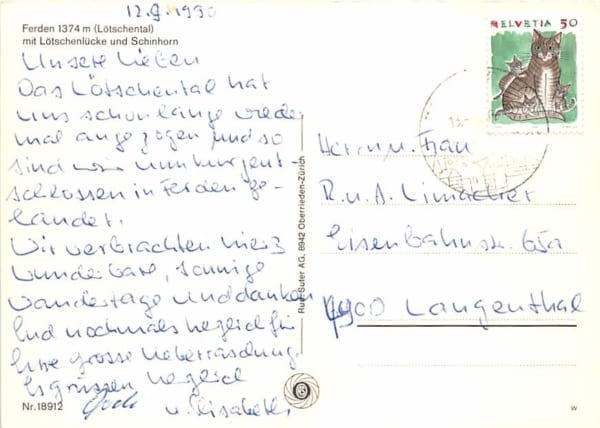 12.9.1990
Ferden 1374 m (Lötschental)
mit Lötschenlücke und Schinhorn
Unsere Lieben
Das Lötschental hat
uns schon lange wieder
mal angezogen und so
sind wir nun kurzent-
schlossen in Ferden ge-
landet.
Wir verbrachten hier 3
wunderbare, sonnige
Wandertage und danken
Euch nochmals herzlich für
Eure grosse Ueberraschung.
Es grüssen herzlich
u. Elisabeth
Nr. 18912
Ruth Suter AG, 8942 Oberrieden-Zürich
HELVETIA 50
Herrn u. Frau
R. u. A. Limacher
Eisenbahnstr. 65a
4900 Langenthal
W